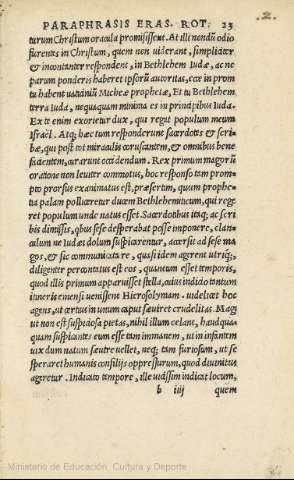 2.
PARAPHRASIS ERAS. ROT. 23
turum Christum oracula promisissent. At illi nondũ odio
furentes in Christum, quem non viderant, simpliciter
& incontanter respondent, in Bethlehem Iudæ, ac ne
parum ponderis haberet ipsorũ autoritas, ceu in prom
tu habent vaticiniũ Micheæ prophetæ, Et tu Bethlehem
terra Iuda, nequaquam minima es in principibus Iuda.
Ex te enim exorietur dux, qui regat populum meum
Israël. Atq; hæc tum responderunt sacerdotes & scri-
bæ, qui post tot miraculis coruscantem, & omnibus bene
ficientem, curarunt occidendum. Rex primum magorũ
oratione non leuiter commotus, hoc responso tam prom
pto prorsus exanimatus est, præsertim, quum prophe-
tia palam polliceretur ducem Bethlehemiticum, qui reg
ret populum unde natus esset. Sacerdotibus itaq; ac scri
bis dimissis, qbus sese desperabat posse imponere, clan-
culum ne Iudæi dolum suspicarentur, accersit ad sese ma
gos, & sic communicat a re, quasi idem ageret utriq;,
diligenter percontatus est eos, quantum esset temporis,
quod illis primum apparuisset stella, cuius indicio tantum
itineris emensi uenissent Hierosolymam. uidelicet hoc
agens, ut certius in unum caput sæuiret crudelitas. Magi
ut non est suspiciosa pietas, nihil illum celant, haudqua
quam suspicantes eum esse tam immanem, ut in infantem
uix dum natum sæuire uellet, neq; tam furiosum, ut se
speraret humanis consilijs oppressurum, quod diuinitus
ageretur. Indicato tempore, ille uicissim indicat locum,
b iij quem
Ministerio de Educación, Cultura y Deporte